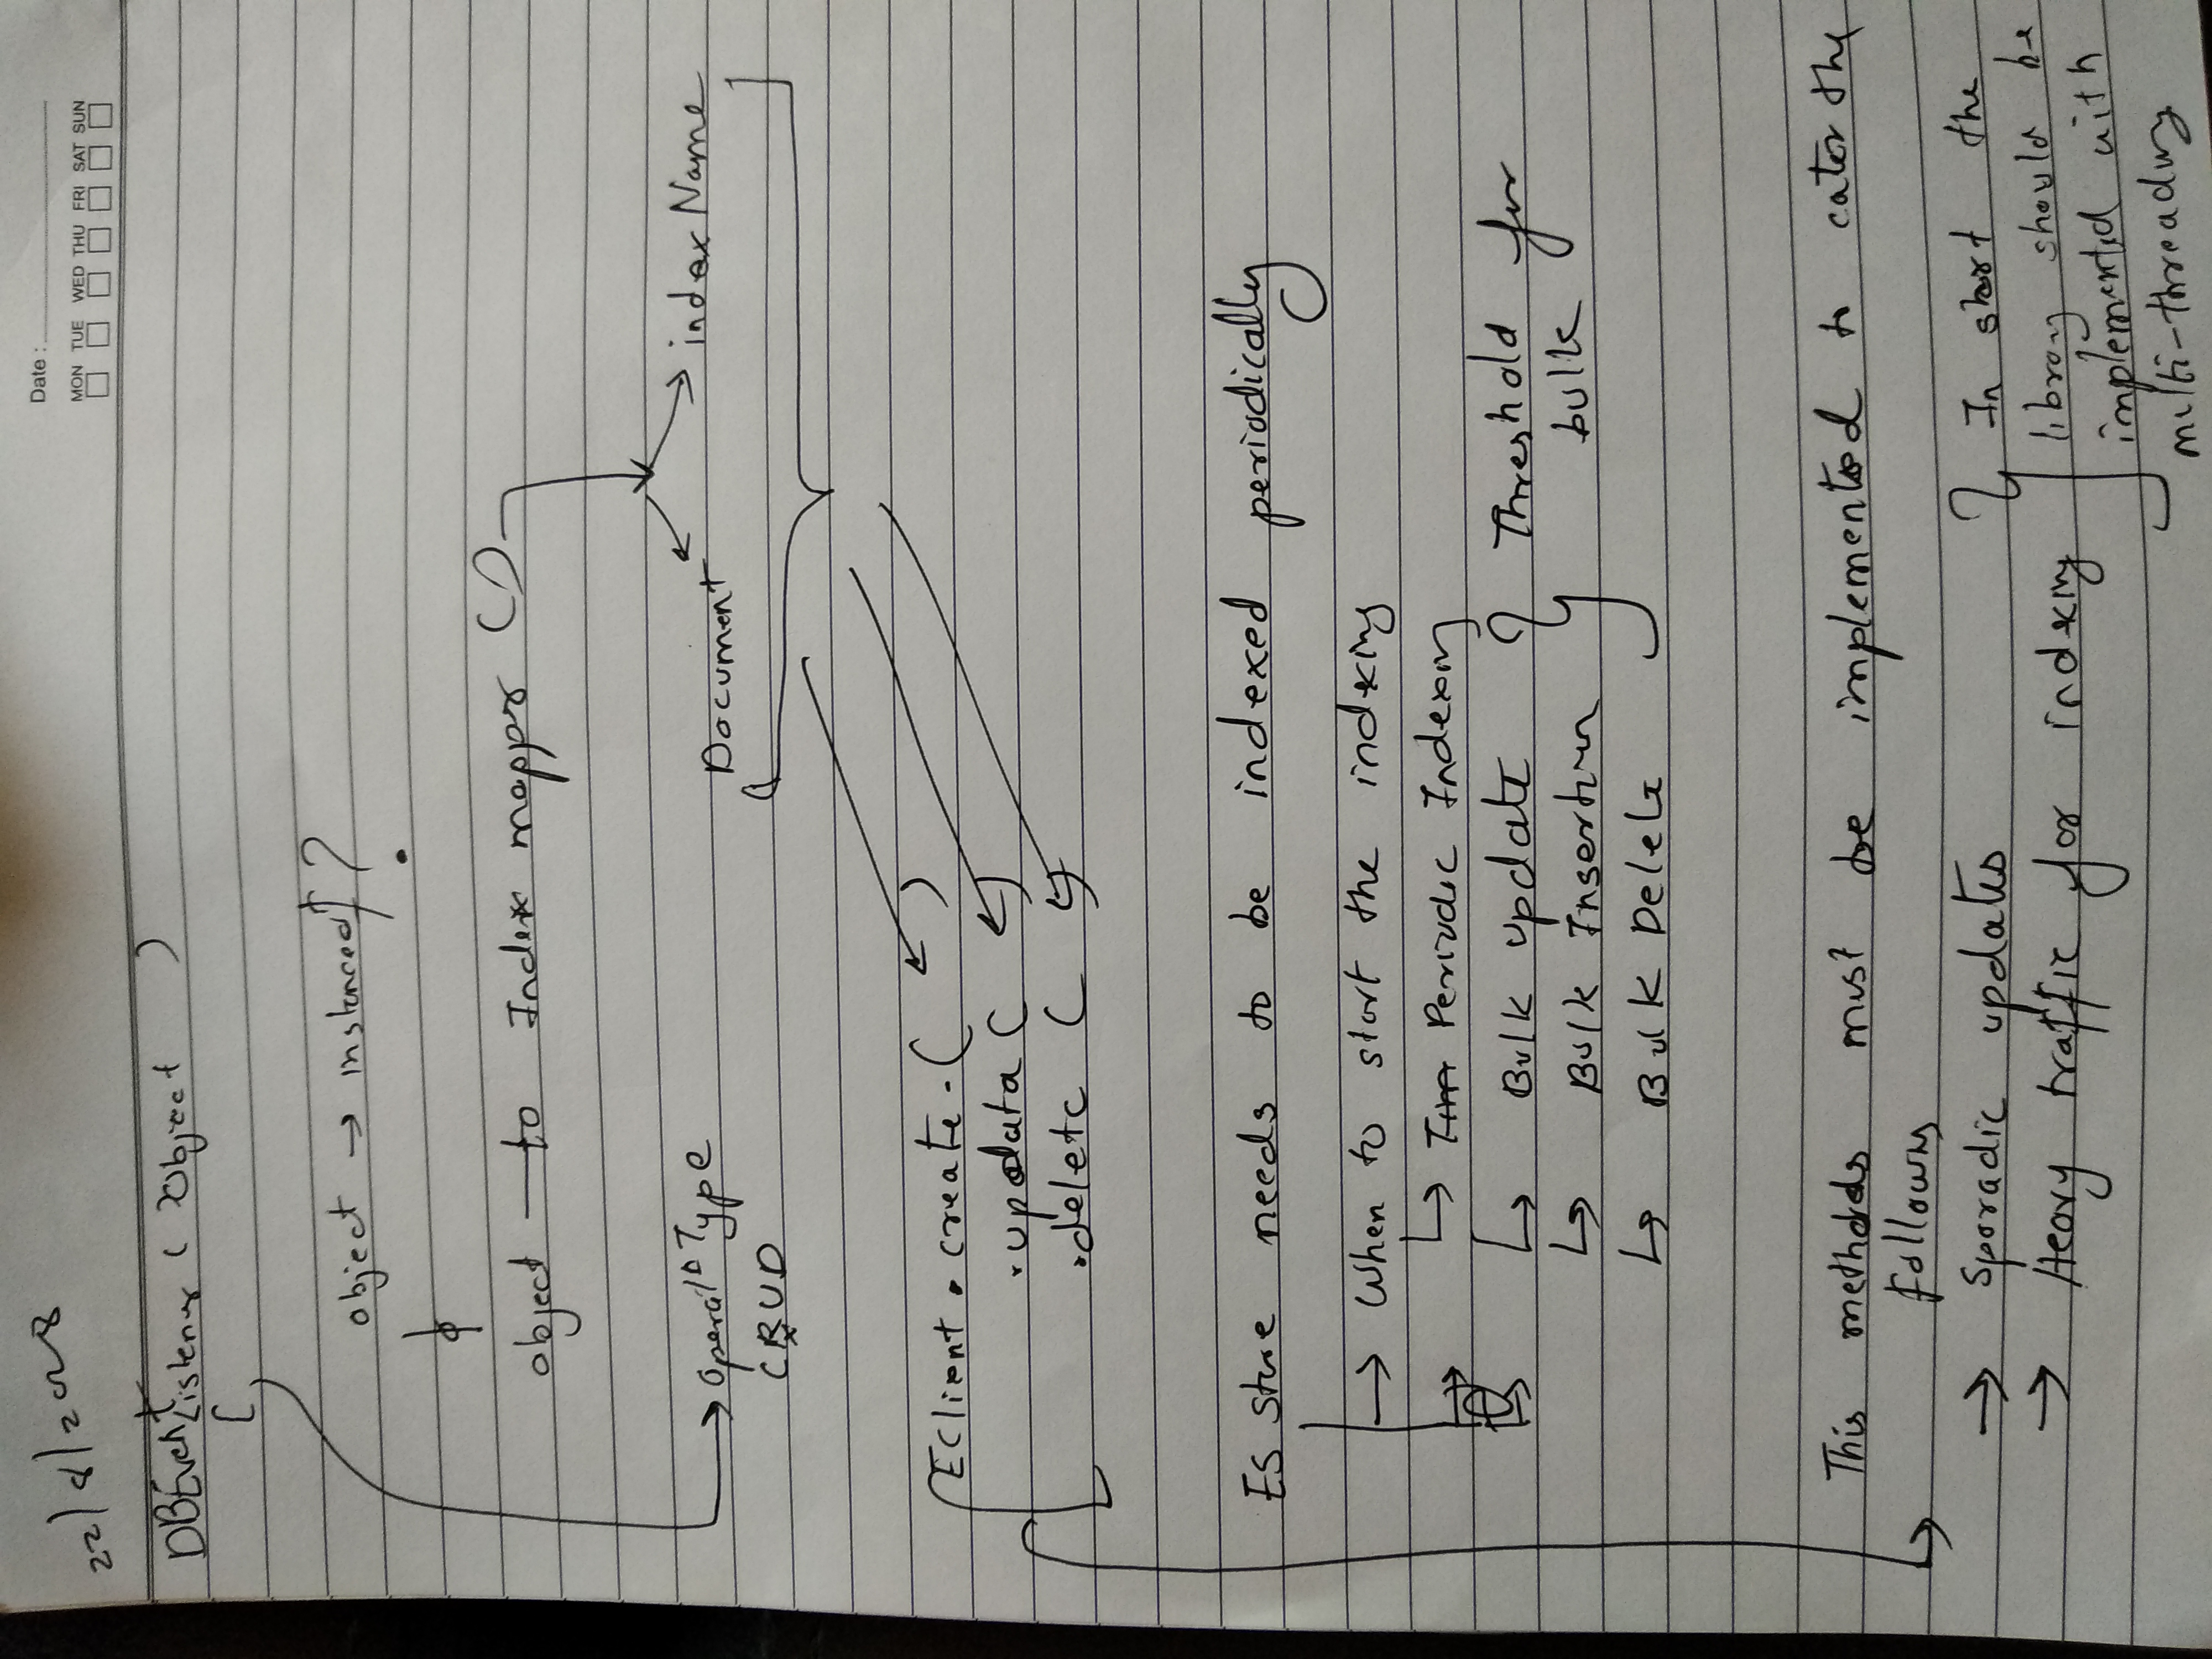 22/8/2018
Date :
MON TUE WED THU FRI SAT SUN
DBEvent Listener ( Object )
object → instanceof ?
object — to Index mapper ()
Document
indexName
Type
CRUD
EClient . create . ( )
. updata ( )
. delete ( )
ES store needs to be indexed periodically
→ When to start the indexing
↳ Periodic Indexing
↳ Bulk update
↳ Bulk Insertion
↳ Bulk Delete
} Threshold for
bulk
This methods must be implemented to cater the
following
→ Sporadic updates
→ Heavy traffic for indexing
} In start the
library should be
implemented with
multi-threading